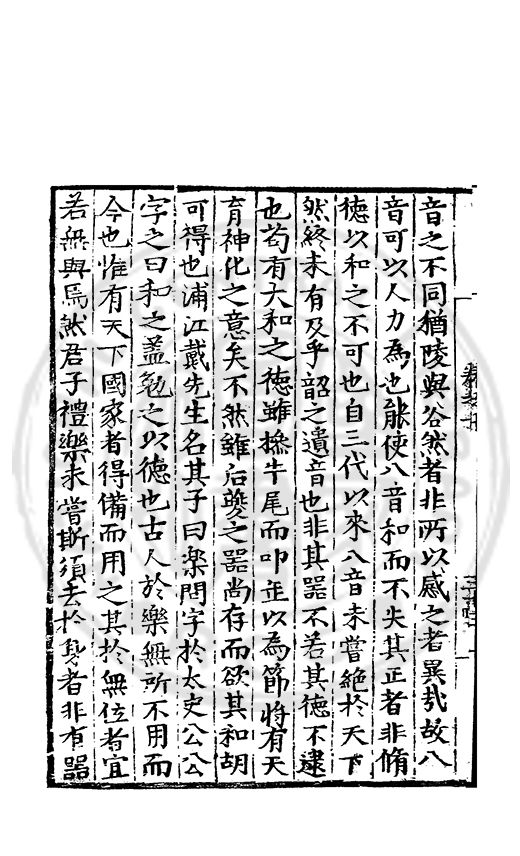 音之不同猶陵與谷然者非所以感之者異㢤故八
音可以人力爲也能使八音和而不失其正者非脩
徳以和之不可也自三代以來八音未嘗絶於天下
然終未有及乎韶之遺音也非其器不若其徳不逮
也茍有大和之徳雖操牛尾而叩缶以為節將有天
育神化之意矣不然雖后夔之器尚存而欲其和胡
可得也浦江戴先生名其子曰樂問字於太史公公
字之曰和之盖勉之以徳也古人於樂無所不用而
今也惟有天下國家者得備而用之其於無位者宜
若無與焉然君子禮樂未嘗斯須去於身者非有器